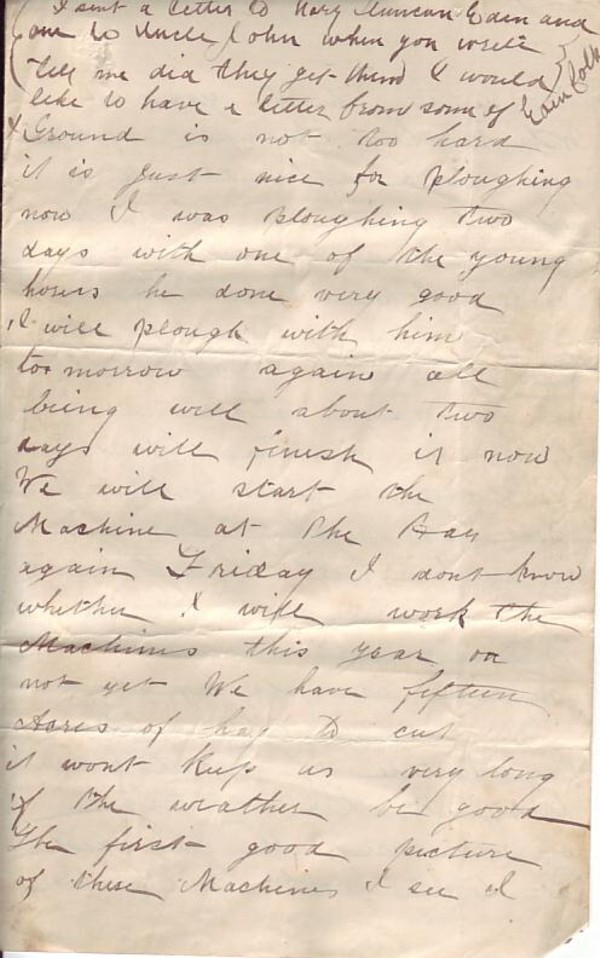 (I sent a letter to Mary Duncan Eden and
one to Uncle John when you write
(tell me did they get them I would)
like to have a letter from some of Eden folk
Ground is not too hard
it is just nice for ploughing
now I was ploughing two
days with one of the young
horses he done very good
I will plough with him
tomorrow again all
being well about two
days will finish it now
We will start the
Machine at the Hay
again Friday I dont know
whether I will work the
Machines this year or
not yet We have fifteen
Acres of hay to cut
it wont keep us very long
if the weather be good
The first good picture
of these Machines I see I